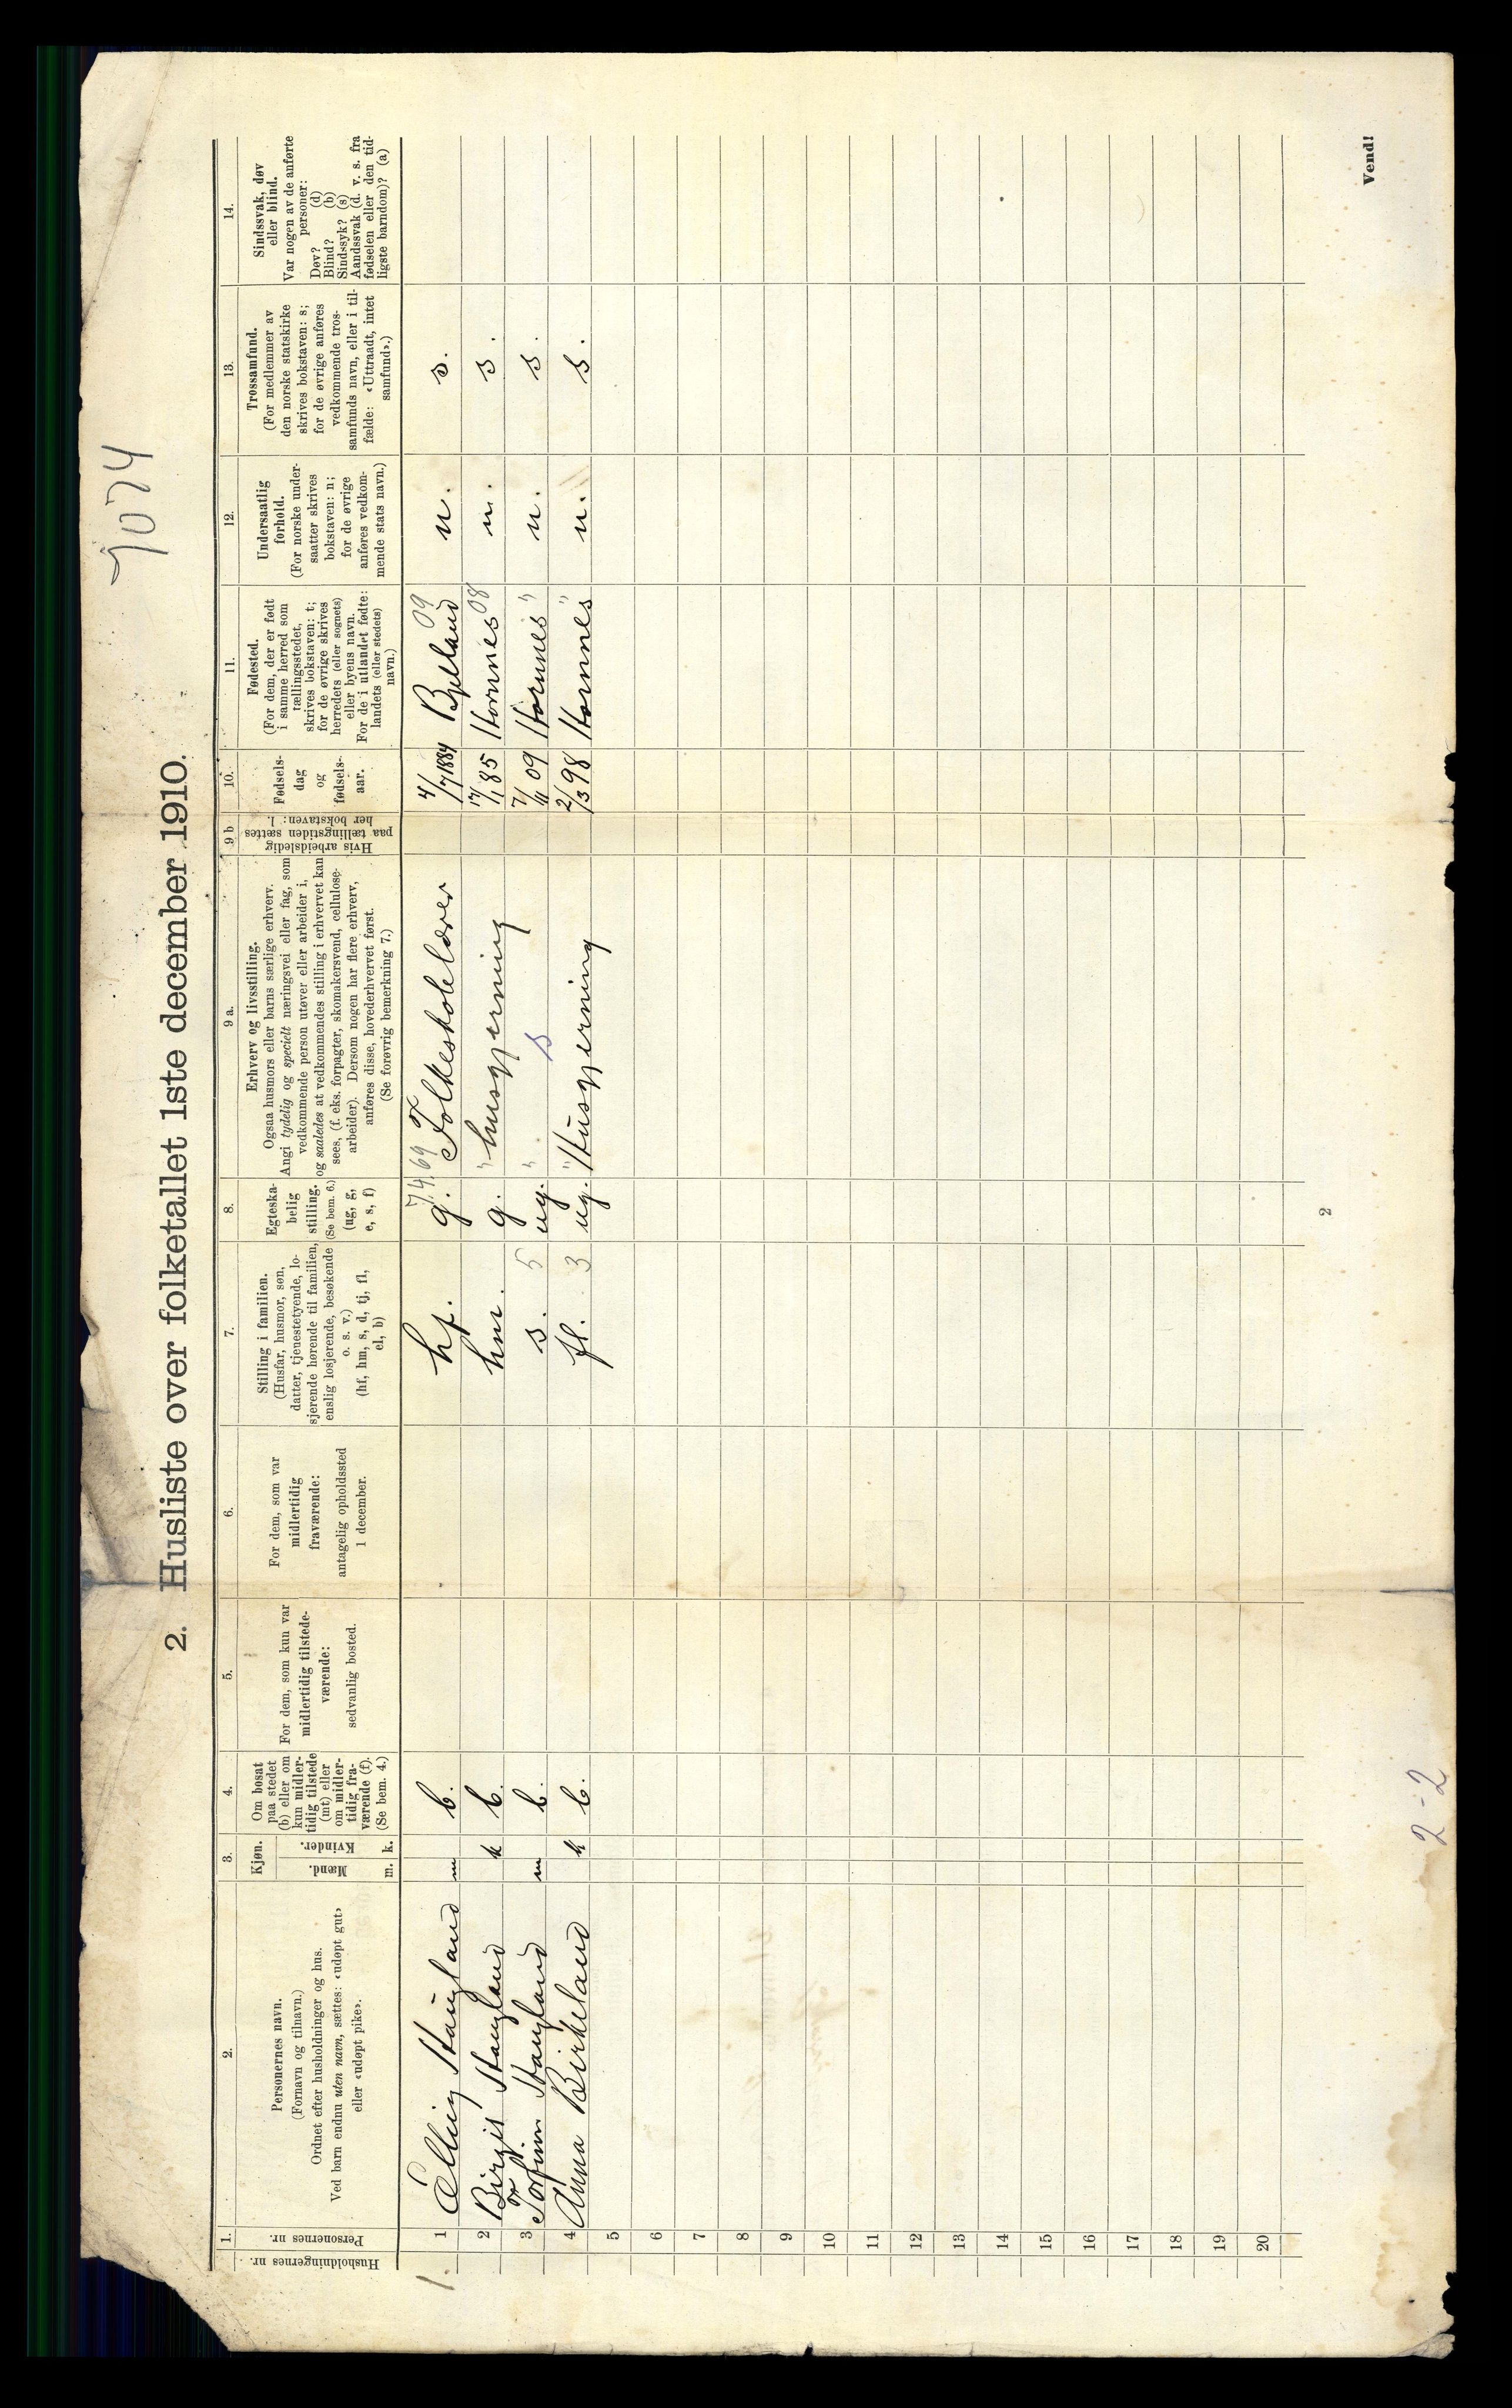 7074
2. Husliste over folketallet 1ste december 1910.
Husholdningernes nr.
1.
Personernes nr.
2.
Personernes navn.
(Fornavn og tilnavn.)
Ordnet efter husholdninger og hus.
Ved barn endnu uten navn, sættes: «udøpt gut»
eller «udøpt pike».
3.
Kjøn.
Mænd.
Kvinder.
m. k.
4.
Om bosat
paa stedet
(b) eller om
kun midler-
tidig tilstede
(mt) eller
om midler-
tidig fra-
værende (f).
(Se bem. 4.)
5.
For dem, som kun var
midlertidig tilstede-
værende:
sedvanlig bosted.
6.
For dem, som var
midlertidig
fraværende:
antagelig opholdssted
1 december.
7.
Stilling i familien.
(Husfar, husmor, søn,
datter, tjenestetyende, lo-
sjerende hørende til familien,
enslig losjerende, besøkende
o. s. v.)
(hf, hm, s, d, tj, fl,
el, b)
8.
Egteska-
belig
stilling.
(Se bem. 6.)
(ug, g,
e, s, f)
9 a.
Erhverv og livsstilling.
Ogsaa husmors eller barns særlige erhverv.
Angi tydelig og specielt næringsvei eller fag, som
vedkommende person utøver eller arbeider i,
og saaledes at vedkommendes stilling i erhvervet kan
sees, (f. eks. forpagter, skomakersvend, cellulose-
arbeider). Dersom nogen har flere erhverv,
anføres disse, hovederhvervet først.
(Se forøvrig bemerkning 7.)
9 b
Hvis arbeidsledig
paa tællingstiden sættes
her bokstaven: l.
10.
Fødsels-
dag
og
fødsels-
aar.
11.
Fødested.
(For dem, der er født
i samme herred som
tællingsstedet,
skrives bokstaven: t;
for de øvrige skrives
herredets (eller sognets)
eller byens navn.
For de i utlandet fødte:
landets (eller stedets)
navn.)
12.
Undersaatlig
forhold.
(For norske under-
saatter skrives
bokstaven: n;
for de øvrige
anføres vedkom-
mende stats navn.)
13.
Trossamfund.
(For medlemmer av
den norske statskirke
skrives bokstaven: s;
for de øvrige anføres
vedkommende tros-
samfunds navn, eller i til-
fælde: «Uttraadt, intet
samfund».)
14.
Sindssvak, døv
eller blind.
Var nogen av de anførte
personer:
Døv? (d)
Blind? (b)
Sindssyk? (s)
Aandssvak (d. v. s. fra
fødselen eller den tid-
ligste barndom)? (a)
1. 1 Elling Haugland m b. hf. g. 7.4.69 Folkeskolelærer 4/7 1884 Bjelland 09 n. s.
2 Birgit Haugland k b. hm. g. " husgjerning 17/1 85 Hornnes 08 n. s.
3 Torfinn Haugland m b. s. 5 ug. " s 7/11 09 Hornnes " n. s.
4 Anna Birkeland k b. fl. 3 ug. " Husgjerning 2/3 98 Hornnes " n. s.
5
6
7
8
9
10
11
12
13
14
15
16
17
18
19
20
2
Vend!
2-2